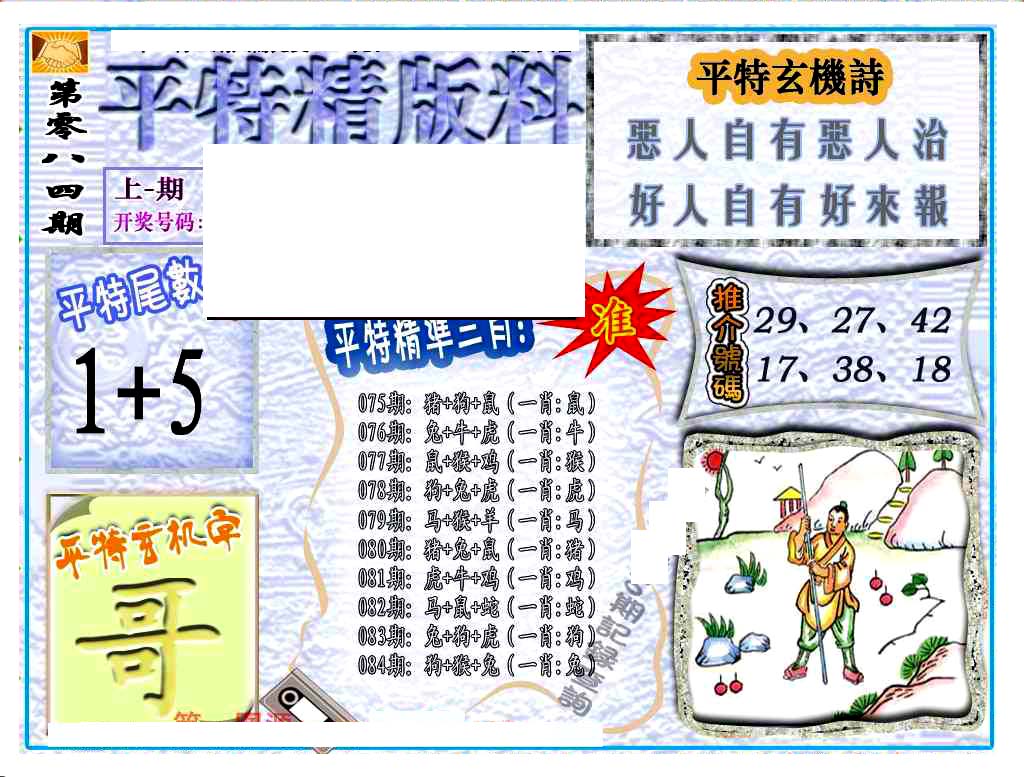 第零八四期
平特精版料
上-期
开奖号码:
平特玄機詩
惡人自有惡人治
好人自有好來報
平特尾數
1+5
平特精準三肖!
准
推介號碼
29、27、42
17、38、18
075期: 猪+狗+鼠 (一肖:鼠)
076期: 兔+牛+虎 (一肖:牛)
077期: 鼠+猴+鸡 (一肖:猴)
078期: 狗+兔+虎 (一肖:虎)
079期: 马+猴+羊 (一肖:马)
080期: 猪+兔+鼠 (一肖:猪)
081期: 虎+牛+鸡 (一肖:鸡)
082期: 马+鼠+蛇 (一肖:蛇)
083期: 兔+狗+虎 (一肖:狗)
084期: 狗+猴+兔 (一肖:兔)
平特玄机字
哥
期記錄查詢